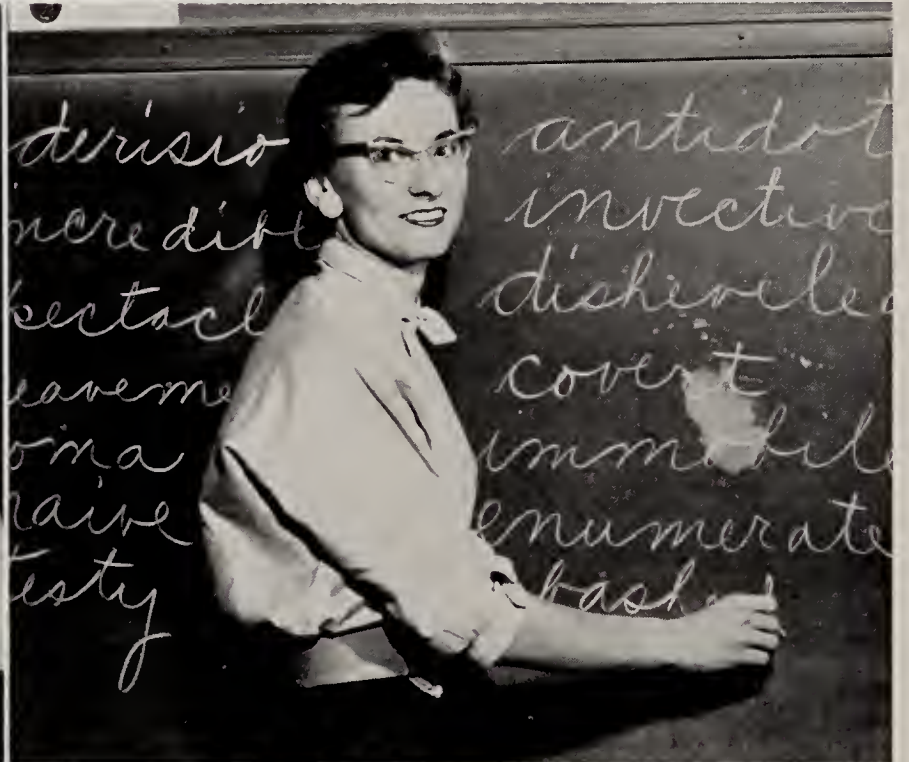 derisio
ncredibl
pectacl
eaveme
oma
naive
testy
antidot
invective
disheveled
covert
immobil
enumerate
bash